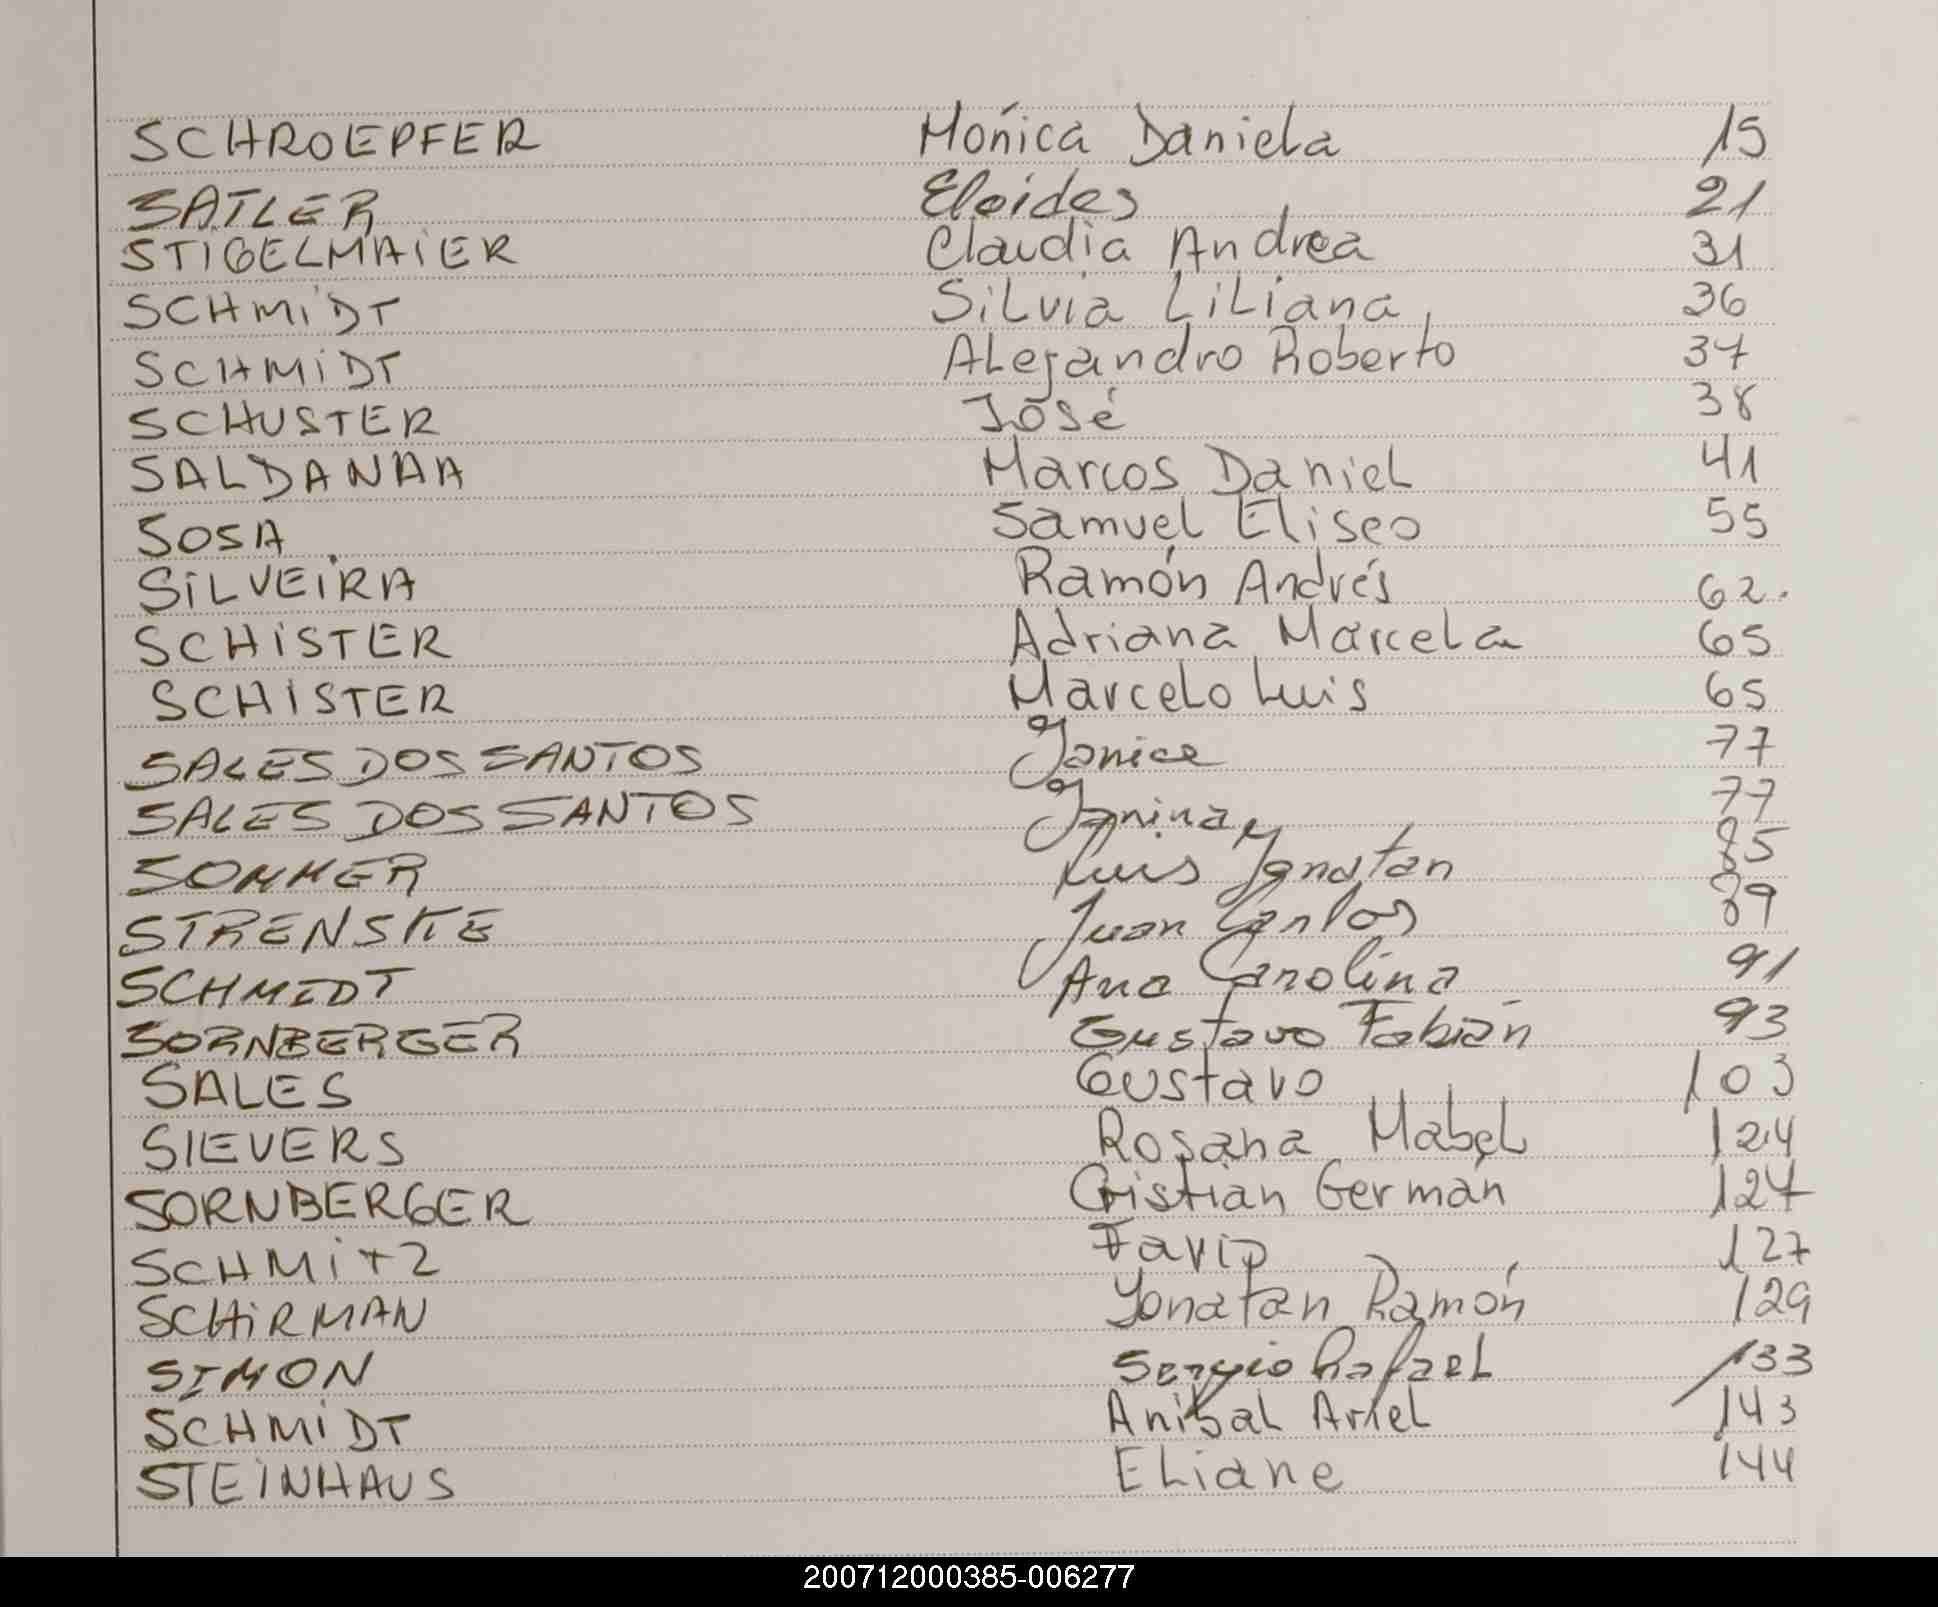 SCHROEPFER Mónica Daniela 15
SATLER Eloides 21
STIGELMAIER Claudia Andrea 31
SCHMIDT Silvia Liliana 36
SCHMIDT Alejandro Roberto 37
SCHUSTER José 38
SALDANHA Marcos Daniel 41
SOSA Samuel Eliseo 55
SILVEIRA Ramón Andrés 62.
SCHISTER Adriana Marcela 65
SCHISTER Marcelo Luis 65
SALES DOS SANTOS Janice 77
SALES DOS SANTOS Janina 77
SOMMER Luis Jonatan 85
STRENSKE Juan Carlos 89
SCHMIDT Ana Carolina 91
SORNBERGER Gustavo Fabián 93
SALES Gustavo 103
SIEVERS Rosana Mabel 124
SORNBERGER Cristian Germán 127
SCHMITZ Favio 127
SCHIRMAN Yonatan Ramón 129
SIMON Sergio Rafael 133
SCHMIDT Anibal Ariel 143
STEINHAUS Eliane 144
200712000385-006277